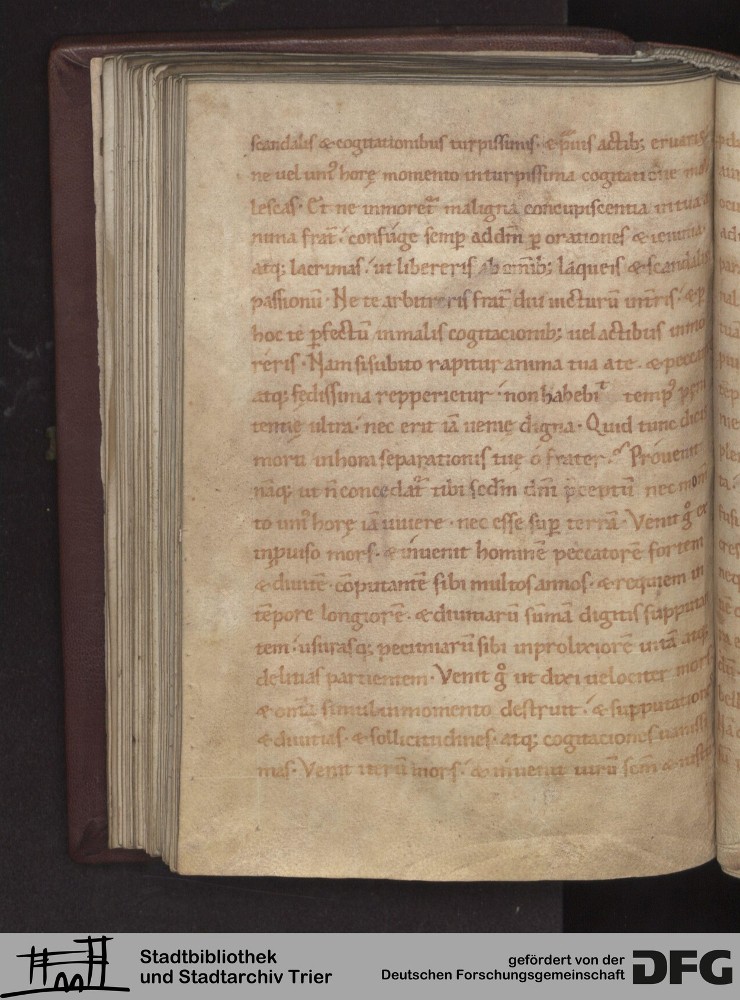 scandalis & cogitationibus turpissimis · & p̄uis actib; eruaris
ne uel uni᷒ horę momento inturpissima cogitatione
lescas · Et ne inmoret᷑ maligna concupiscentia intua
nima frat̄ · confuge semp̄ addn̄m ꝑ orationes & ieiunia
atq; lacrimas · ut libereris ab omib; laqueis & scandalis
passionū · Ne te arbitreris frat̄ diu uicturū
hoc te ꝑfectū inmalis cogitacionib; uel actibus inmo
reris · Nam si subito rapitur anima tua a te · & pecca
atq; fędissima repperietur · non habebit temp᷒ pęni
tentię ultra · nec erit iā uenię digna · Quid tunc dicis
morti inhora separationis tuę o frater · Prouenit
nāq; ut ñ concedat᷑ tibi scd̄m dn̄m p̄ceptū nec mom̄
to uni᷒ horę iā uiuere · nec esse sup̄ terrā · Venit g̊ ex
inꝓuiso mors · & inuenit hominē peccatorē fortem
& diuitē · cōputantē sibi multos annos · & requiem in
tēpore longiorē · & diuitiarū sūmā digitis supputan
tem · usurasq; pecuniarū sibi inprolixiorē uitā atq;
delitias partientem · Venit g̊ ut dixi uelociter mors
& om̄a simul inmomento destruit · & supputationes
& diuitias · & sollicitudines · atq; cogitaciones uanissi
mas · Venit iterū mors · & inuenit uirū sc̄m & iustū
Stadtbibliothek
und Stadtarchiv Trier
gefördert von der
Deutschen Forschungsgemeinschaft
DFG